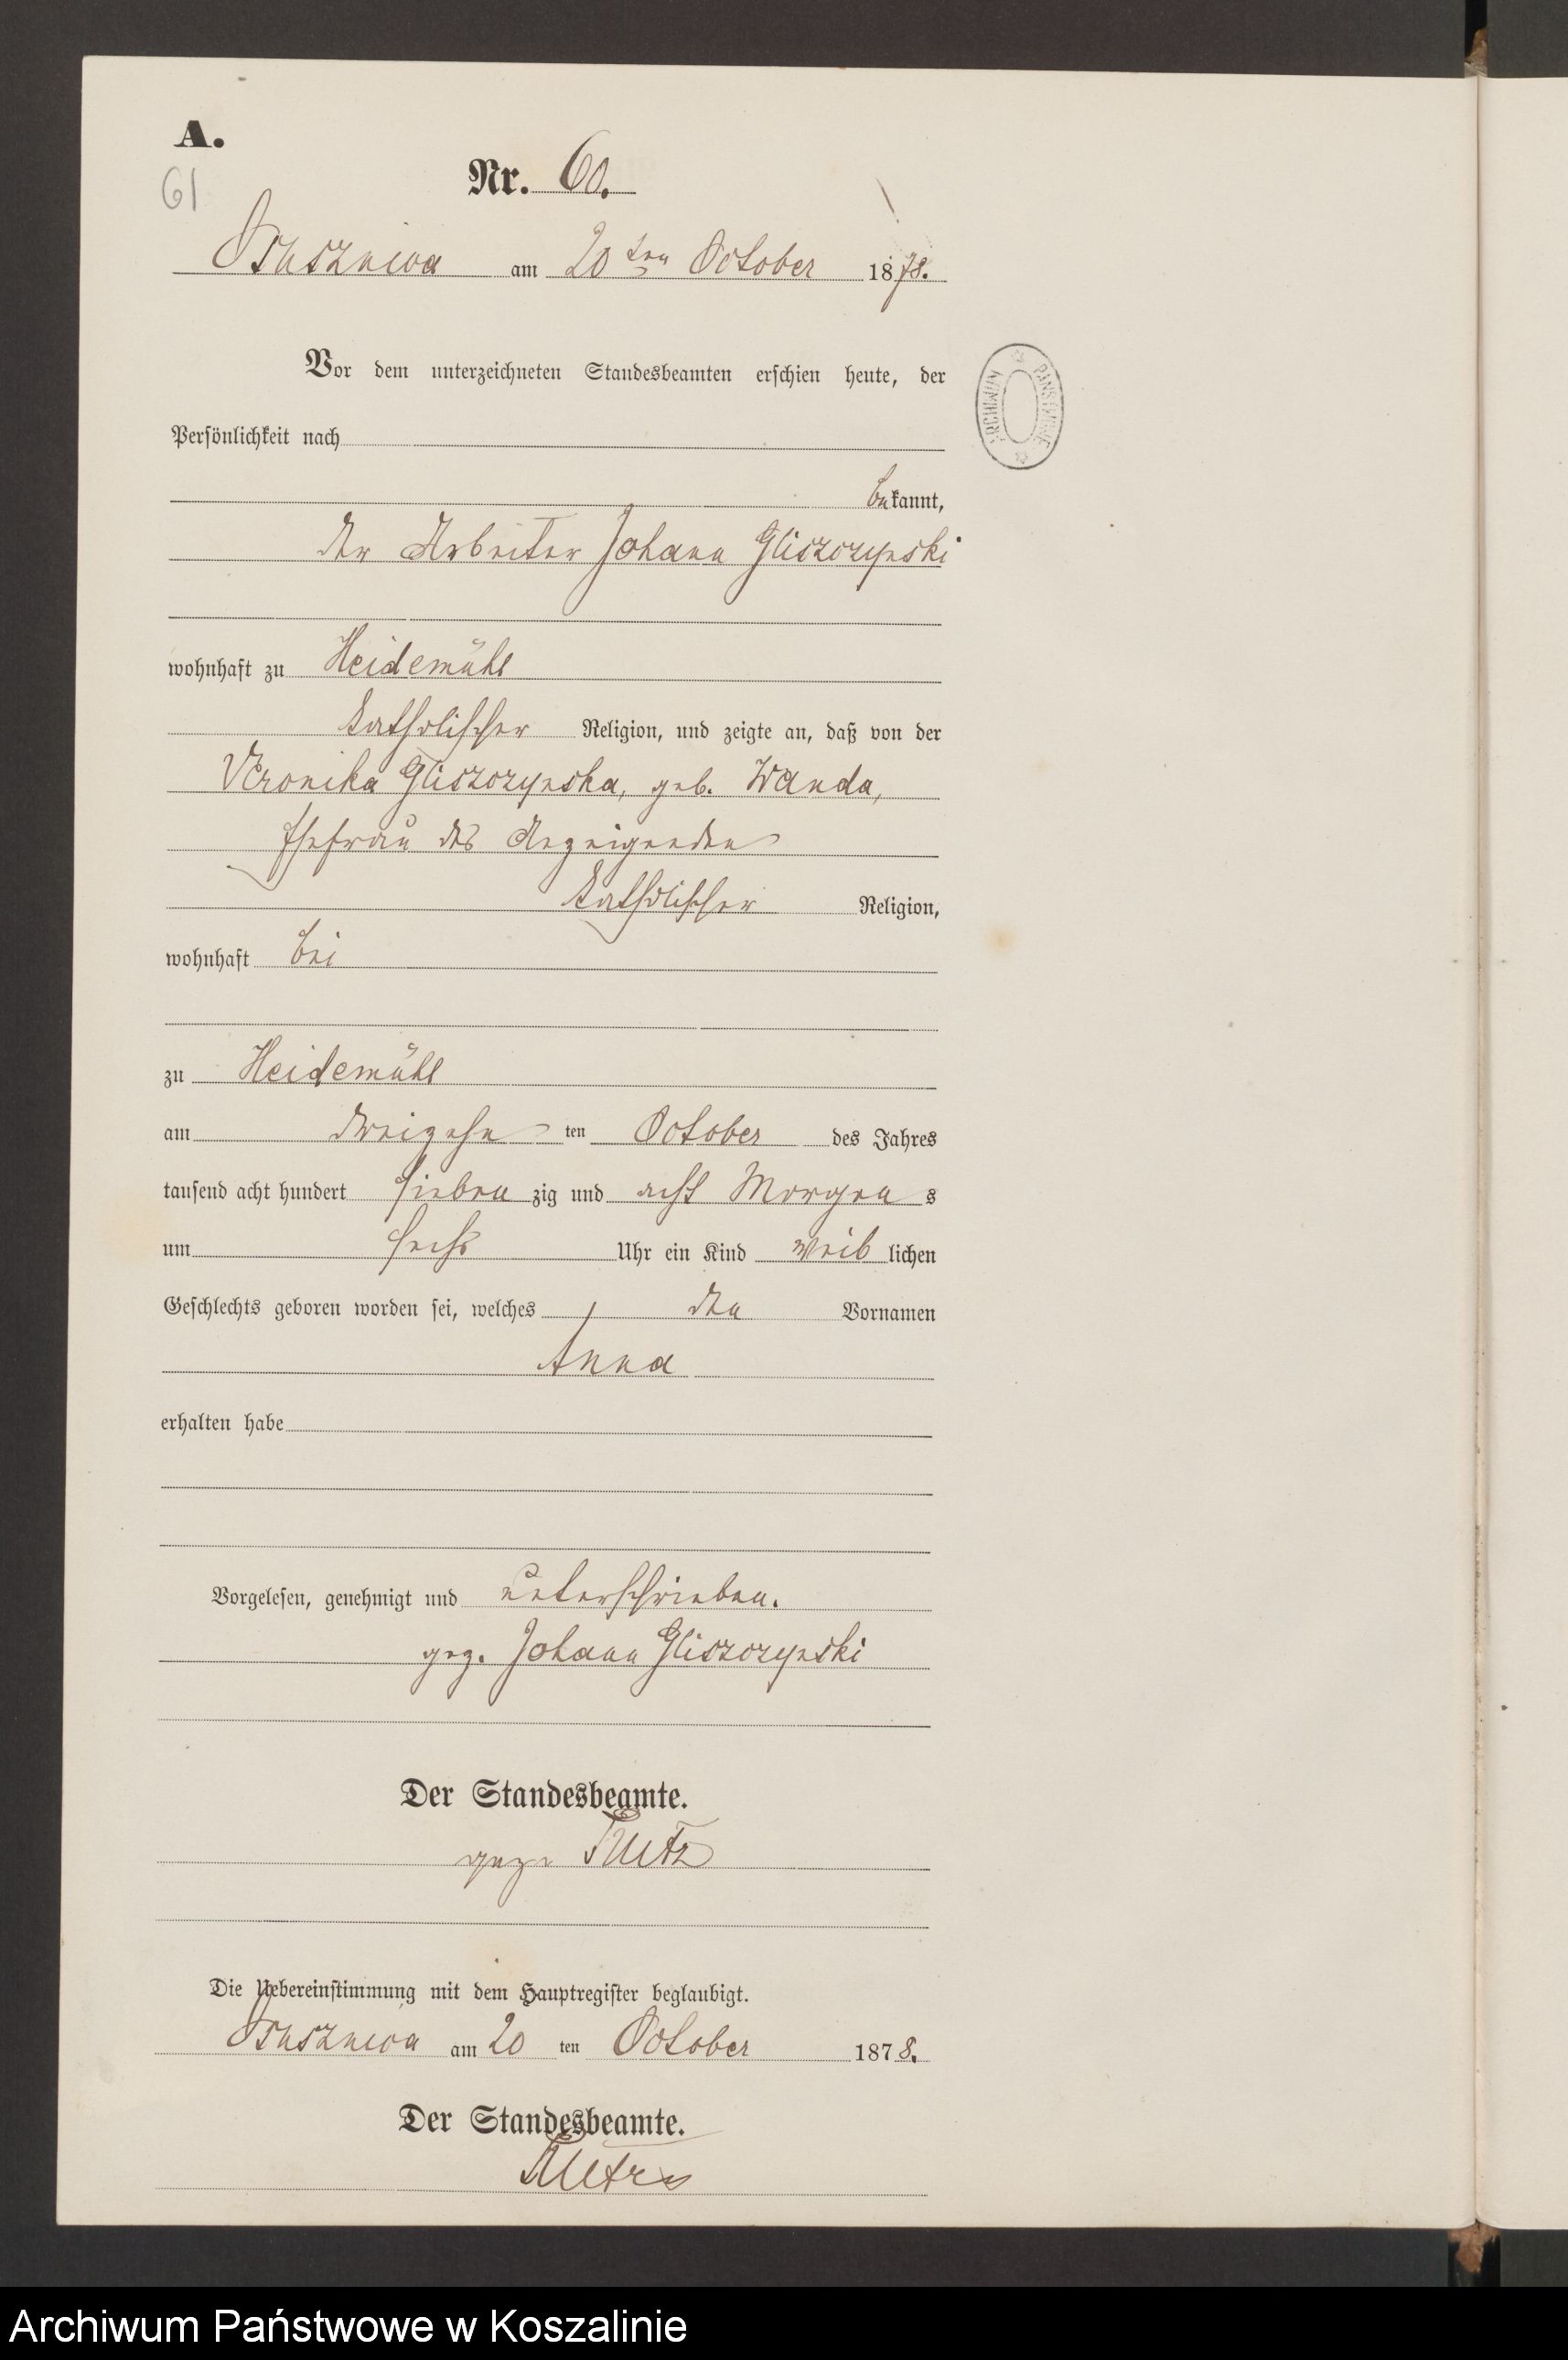 A.
61
Nr. 60.
Ossusznica am 20ten October 1878.
Vor dem unterzeichneten Standesbeamten erschien heute, der
Persönlichkeit nach
bekannt,
der Arbeiter Johann Gliszczynski
wohnhaft zu Heidemühl
katholischer Religion, und zeigte an, daß von der
Veronika Gliszczynska, geb. Wanda,
Ehefrau des Anzeigenden
katholischer Religion,
wohnhaft bei
zu Heidemühl
am dreizehn ten October des Jahres
tausend acht hundert sieben zig und acht Morgen s
um sechs Uhr ein Kind weib lichen
Geschlechts geboren worden sei, welches den Vornamen
Anna
erhalten habe
Vorgelesen, genehmigt und unterschrieben.
gez. Johann Gliszczynski
Der Standesbeamte.
gez.
Die Uebereinstimmung mit dem Hauptregister beglaubigt.
am 20 ten October 1878.
Der Standesbeamte.
ARCHIWUM PAŃSTWOWE
Archiwum Państwowe w Koszalinie